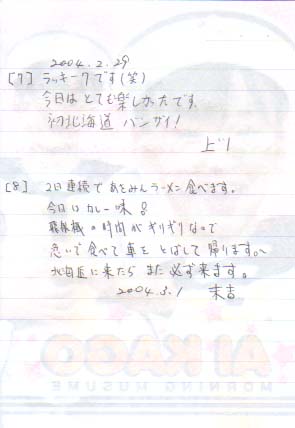 2004.2.29
[7] ラッキー7です(笑)
今日はとても楽しかったです。
初北海道バンザイ!
上〉1
[8] 2日連続であさみんラーメン食べます。
今日はカレー味
飛行機の時間がギリギリなので
急いで食べて車をとばして帰ります。
北海道に来たらまた必ず来ます。
2004.3.1 末吉
AI KAGO
MORNING MUSUME